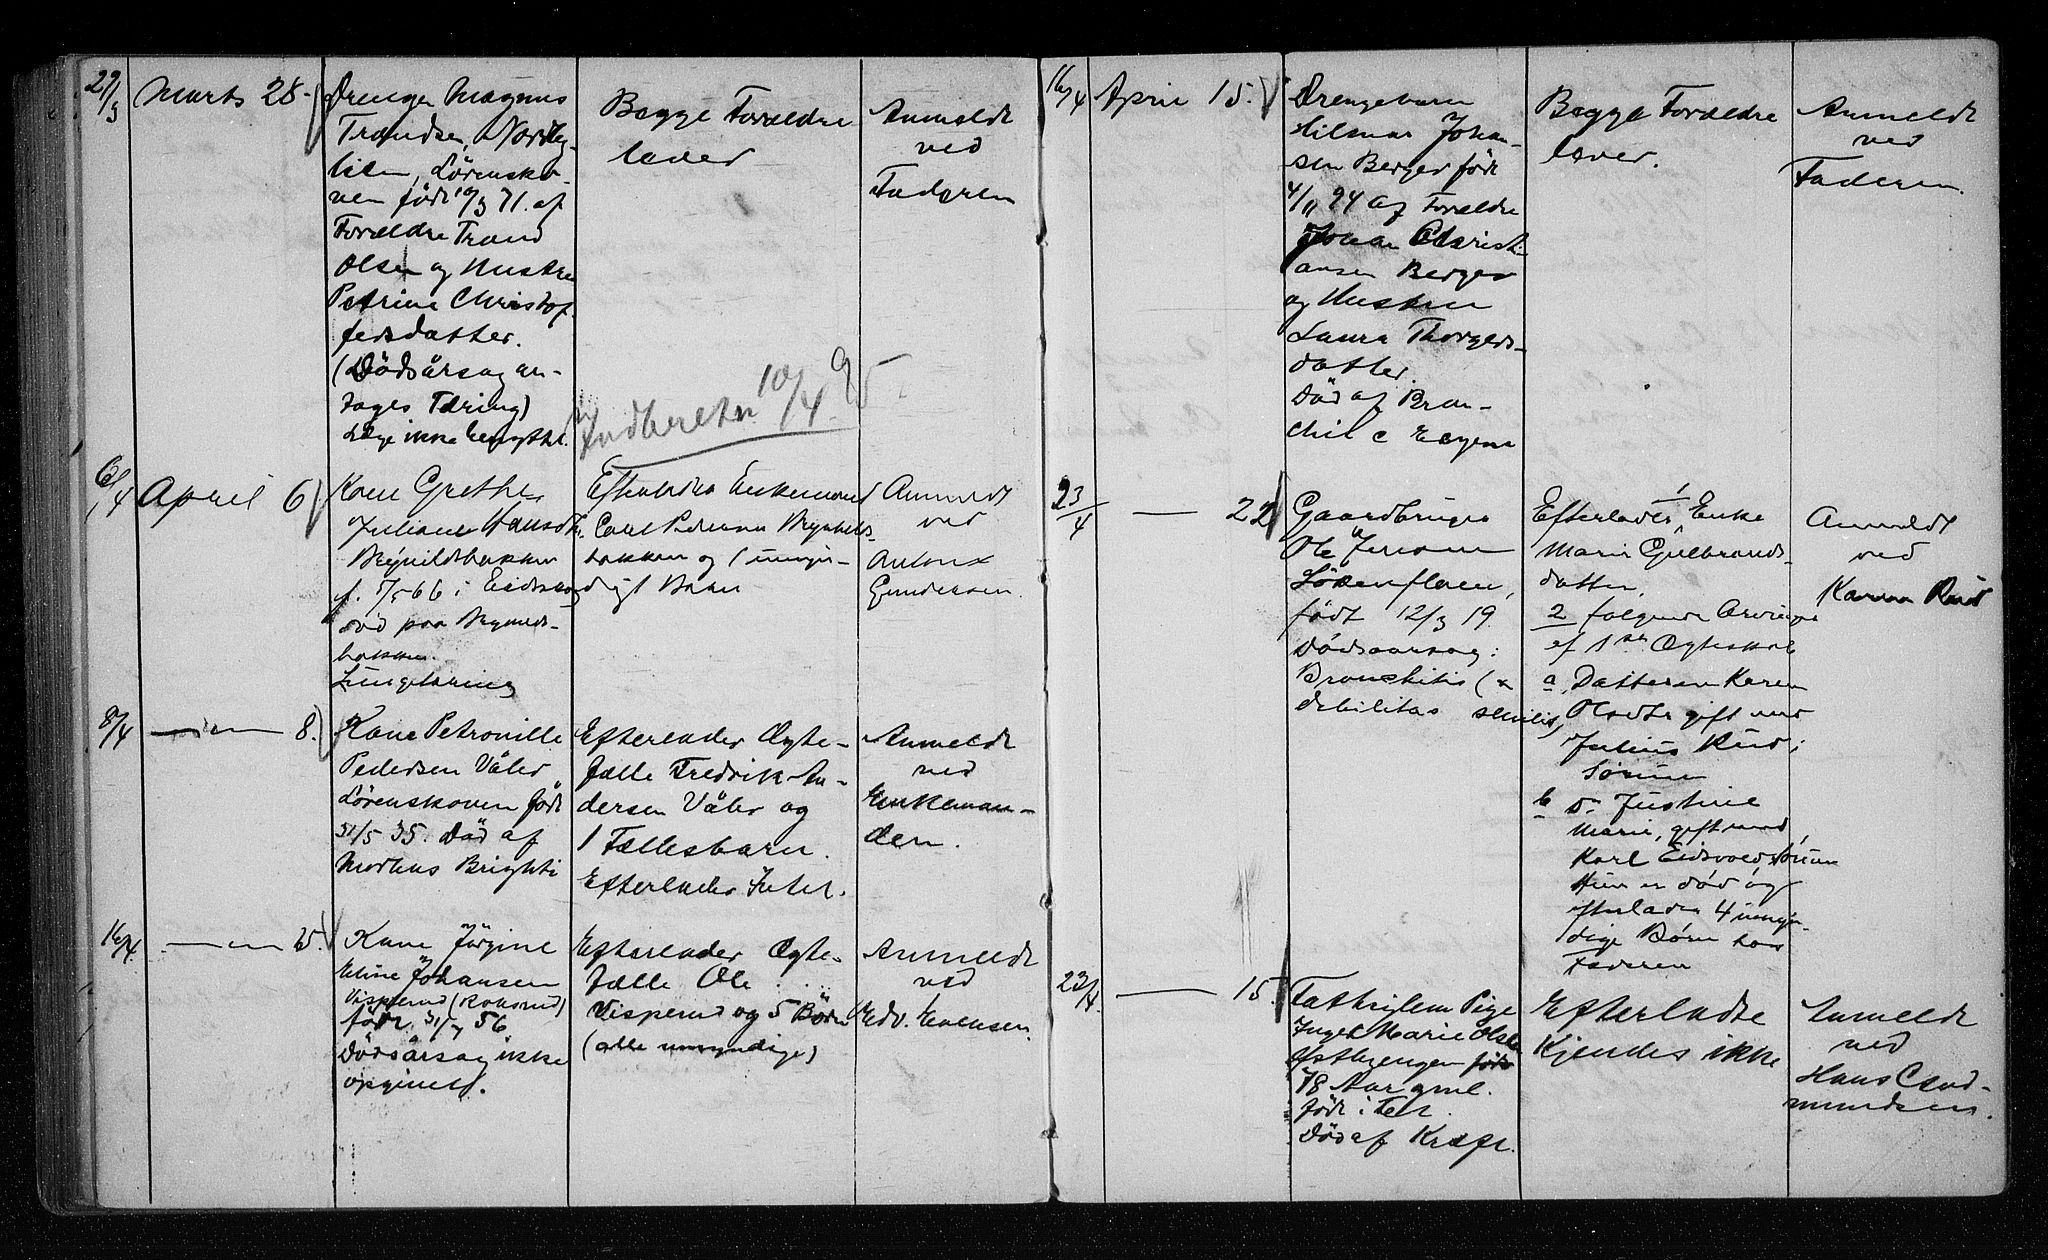 29/3
Marts 28.
Drengen Magnus
Trondsen, Nordby-
lien, Lørensko-
ven født 10/3 71. af
Forældre Trond
Olsen og Hustru
Petrine Christof-
fersdatter.
(Dødsårsag an-
tages Tæring)
Læge ikke benyttet.
Begge Forældre
lever
Anmeldt
ved
Faderen
Indberetn 10/4 95
6/4
April 6
Kone Grethe
Juliane Hansdtr.
f. 5/5 66 i Eidskog
død paa
bakken.
Lungetæring
Efterlader Enkemand
Carl Pedersen
bakken og 1 umyn-
digt Barn
Anmeldt
ved
Anton
Gundersen.
8/4
— " — 8.
Kone Petronille
Pedersen Våler
Lørenskoven født
31/5 35. Død af
Morbus Brighti
Efterlader Ægte-
fælle Fredrik An-
dersen Våler og
1 Fællesbarn.
Efterlader Intet.
Anmeldt
ved
Enkeman-
den.
16/4
— " — 15.
Kone Jørgine
Eline Johansen
Visperud (Roksrud)
født 31/7 56
Dødsårsag ikke
opgivet.
Efterlader Ægte-
fælle Ole
Visperud og 5 Børn
(alle umyndige)
Anmeldt
ved
Edv. Evensen.
16/4
April 15.
Drengebarn
Hilmar Johan-
sen Berger født
4/11 94 af Forældre
Johan Christi-
ansen Berger
og Hustru
Laura Thorgers-
datter.
Død af Bron-
chit c Eczema
Begge Forældre
lever.
Anmeldt
ved
Faderen.
23/4
— 22
Gaardbruger
Ole Jensen
født 12/3 19.
Dødsaarsag:
Bronchitis (&
debilitas senilis)
Efterlader 1, Enke
Marie Gulbrands-
datter,
2 følgende Arvinge
af 1ste Ægteskab
a, Datteren Karen
Olsdtr gift med
Julius Rud i
Sørum
b D. Justine
Marie, gift med
Karl Eidsvold, Sørum
Hun er død og
efterlader 4 umyn-
dige Børn hos
Faderen
Anmeldt
ved
Karen Rud
23/4.
— 15.
Fattiglem Pige
Inger Marie Olsen
Østbyengen født
78 Aar gml.
født i Fet.
Død af Kræft.
Efterladte
Kjendes ikke
Anmeldt
ved
Hans C Gud-
mundsen.